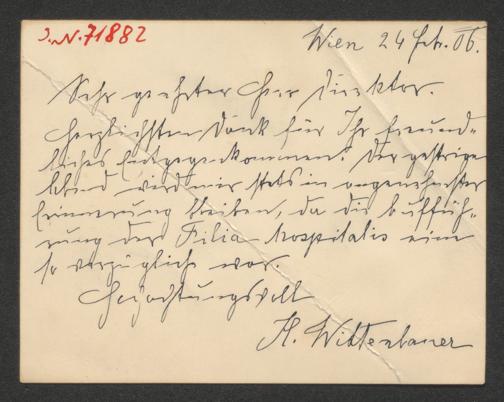 J.N. 71882
Wien 24 Feb. 06.
Sehr geehrter Herr Direktor.
Herzlichsten Dank für Ihr freund-
liches Entgegenkommen! Der gestrige
Abend wird mir stets in angenehmster
Erinnerung bleiben, da die Auffüh-
rung der Filia hospitalis eine
so vorzügliche war.
Hochachtungsvoll
A. Wittenbauer